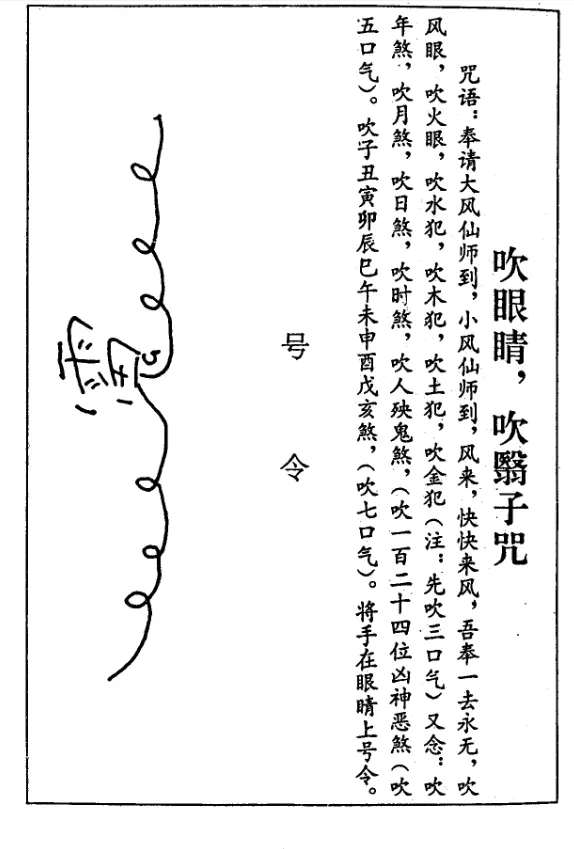 吹眼睛，吹翳子咒
咒语：奉请大风仙师到，小风仙师到，风来，快快来风，吾奉一去永无，吹
风眼，吹火眼，吹水犯，吹木犯，吹土犯，吹金犯（注：先吹三口气）又念：吹
年煞，吹月煞，吹日煞，吹时煞，吹人殃鬼煞，（吹一百二十四位凶神恶煞（吹
五口气）。吹子丑寅卯辰巳午未申酉戊亥煞，（吹七口气）。将手在眼睛上号令。
号令